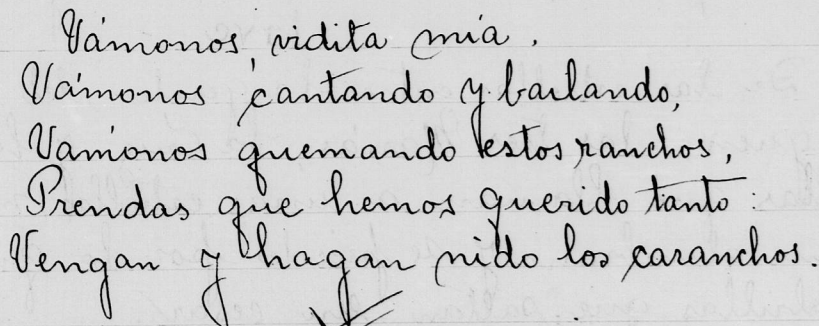 Vámonos, vidita mía,
Vámonos cantando y bailando,
Vámonos quemando estos ranchos,
Prendas que hemos querido tanto:
Vengan y hagan nido los caranchos.